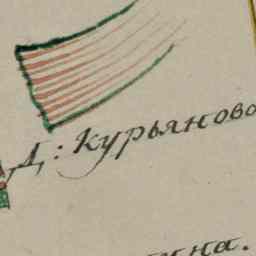 Д: Курьяново